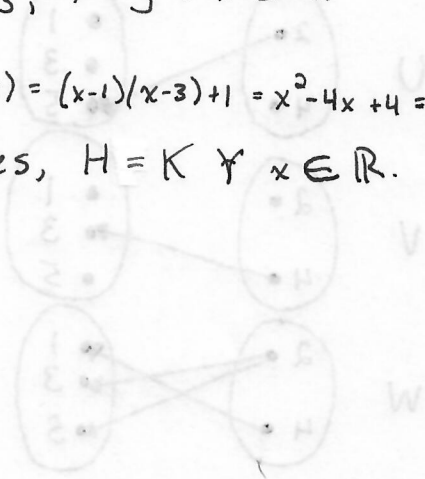 ) = (x-1)(x-3)+1 = x²-4x+4 =
es, H = K ∀ x ∈ ℝ.